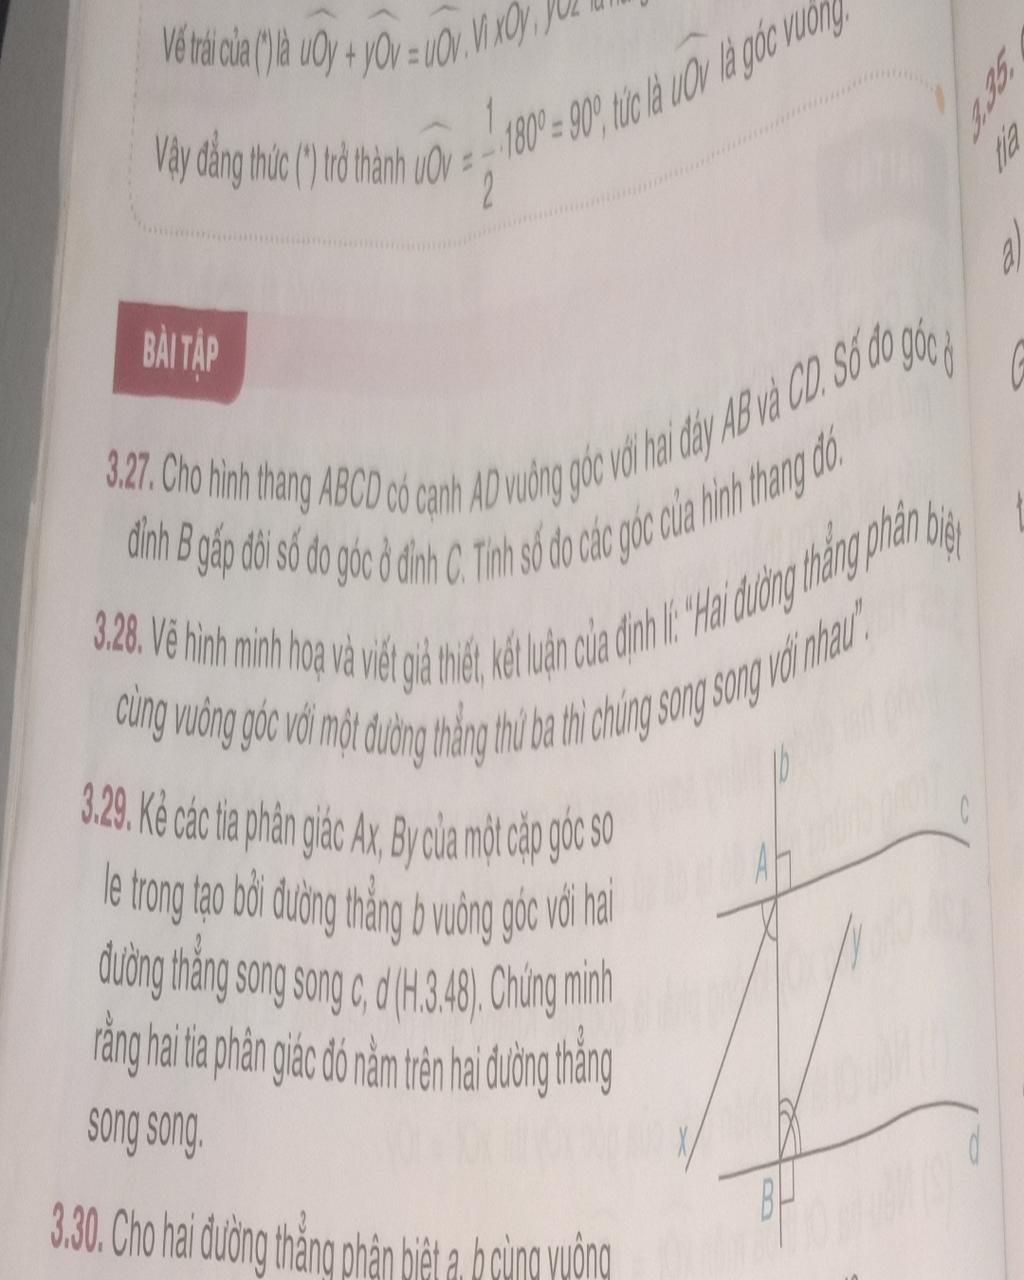 Vế trái của (*) là uOy + yOv = uOv. Vì xOy, yOz là
Vậy đẳng thức (*) trở thành uOv = 1/2 .180⁰ = 90⁰, tức là uOv là góc vuông.
BÀI TẬP
3.27. Cho hình thang ABCD có cạnh AD vuông góc với hai đáy AB và CD. Số đo góc ở
đỉnh B gấp đôi số đo góc ở đỉnh C. Tính số đo các góc của hình thang đó.
3.28. Vẽ hình minh hoạ và viết giả thiết, kết luận của định lí: "Hai đường thẳng phân biệt
cùng vuông góc với một đường thẳng thứ ba thì chúng song song với nhau".
3.29. Kẻ các tia phân giác Ax, By của một cặp góc so
le trong tạo bởi đường thẳng b vuông góc với hai
đường thẳng song song c, d (H.3.48). Chứng minh
rằng hai tia phân giác đó nằm trên hai đường thẳng
song song.
b
c
A
y
x
d
B
3.30. Cho hai đường thẳng phân biệt a, b cùng vuông
3.35.
tia
a)